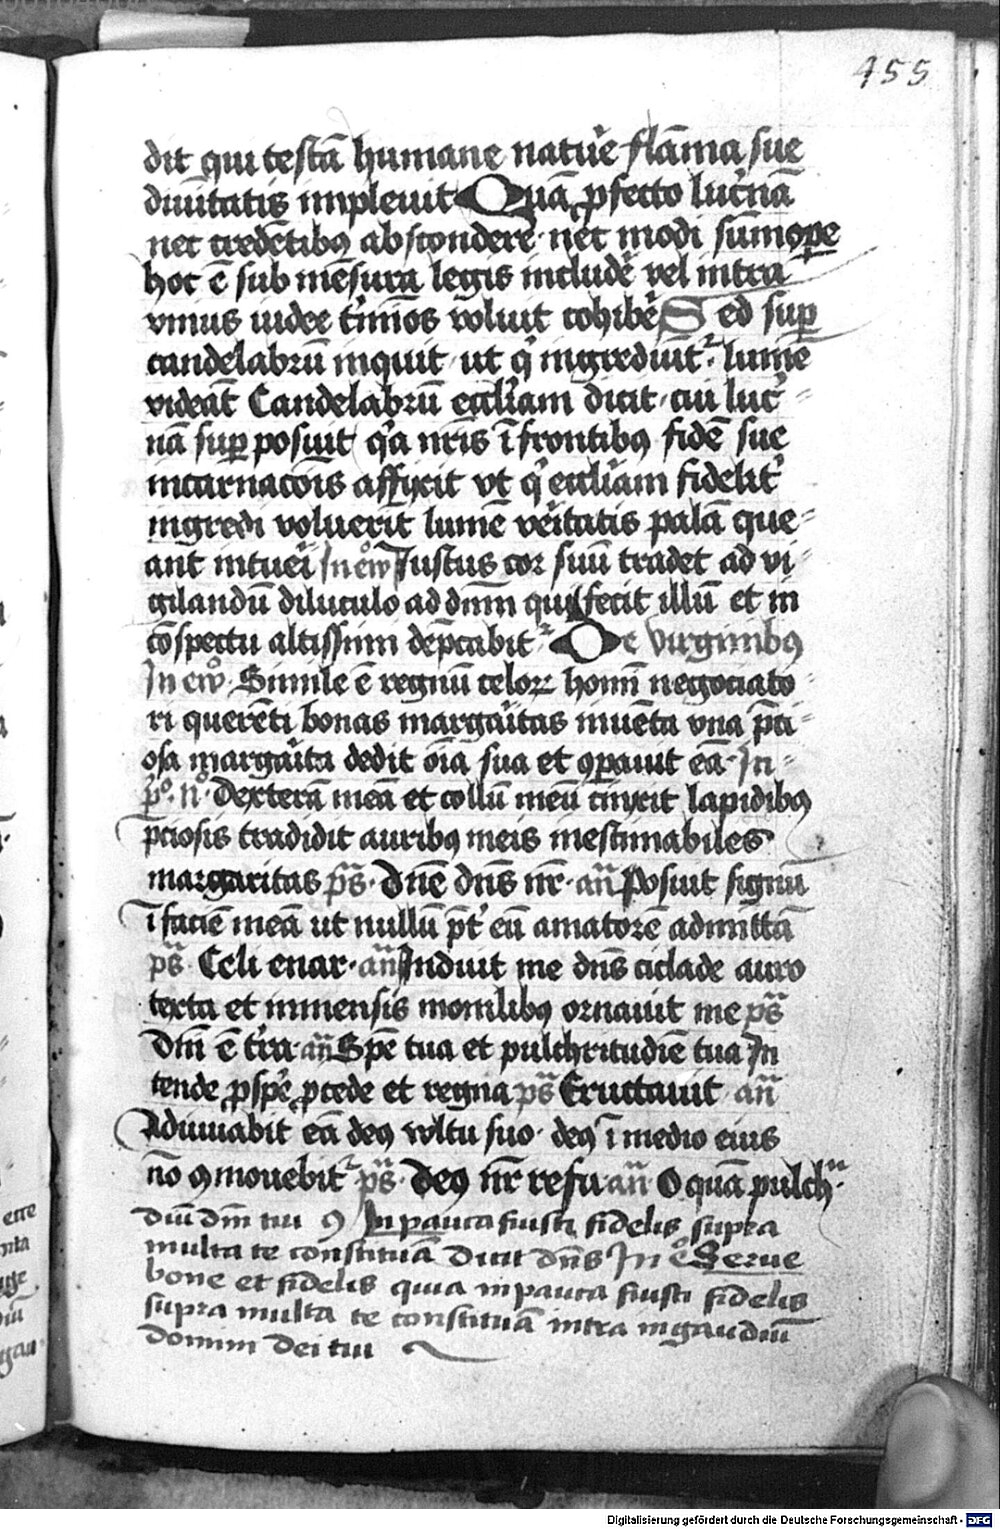 455
dit qui testā humane natur̄e flāma sue
diuītatis impleuit Quā ꝓfecto luc̄nā
nec credētibꝰ abscondere nec modi sūmoꝑe
hoc ē sub mēsura legis includē vel intra
vnius iudee t̄mīos voluit cohibē Sed suꝑ
candelabrū inquit ut qͥ ingrediūtᷣ lumē
videāt Candelabrū eccl̄iam dicit cui luc̄
nā suꝑ posuit qͥa nr̄is ī frontibꝰ fidē sue
incarnacōis affixit vt qͥ eccl̄iam fidelit̄
ingredi voluerīt lumē veritatis palā que
ant intueri In eͦw Justus cor suū tradet ad vi
gilandū diluculo ad dn̄m qui fecit illū et in
cōspectu altissimi dep̄cabitᷣ De virginibꝰ
In ewͦ Simile ē regnū celoꝝ homī negociato
ri querēti bonas margaritas inuēta vna p̄ci
osa margarita dedit oīa sua et ꝯꝑauit eā In
pͥoͦ nͦ Dexterā meā et collū meū cinxit lapidibꝰ
p̄ciosis tradidit auribꝰ meis inestimabiles
margaritas p̄s Dn̄e dn̄s nr̄ an̄ Posuit signū
ī faciē meā ut nullū p̄t̄ eū amatorē admittā
p̄s Celi enar an̄ Induit me dn̄s ciclade auro
texta et inmensis monilibꝰ ornauit me p̄s
Dn̄i ē t̄ra an̄ Spē tua et pulchritudīe tua In
tende ꝓspē ꝓcede et regna p̄s Eructauit an̄
Adiuuabit eā deꝰ vultu suo deꝰ ī medio eius
nō ꝯmouebitᷣ p̄s Deꝰ nr̄ refu an̄ O quā pulch̄
diū dn̄i tui ꝯ In pauca fuisti fidelis supra
multa te constituā dicit dn̄s In eͦ Serue
bone et fidelis quia in pauca fuisti fidelis
supra multa te constituā intra in gaudiū
domini dei tui
Digitalisierung gefördert durch die Deutsche Forschungsgemeinschaft - DFG